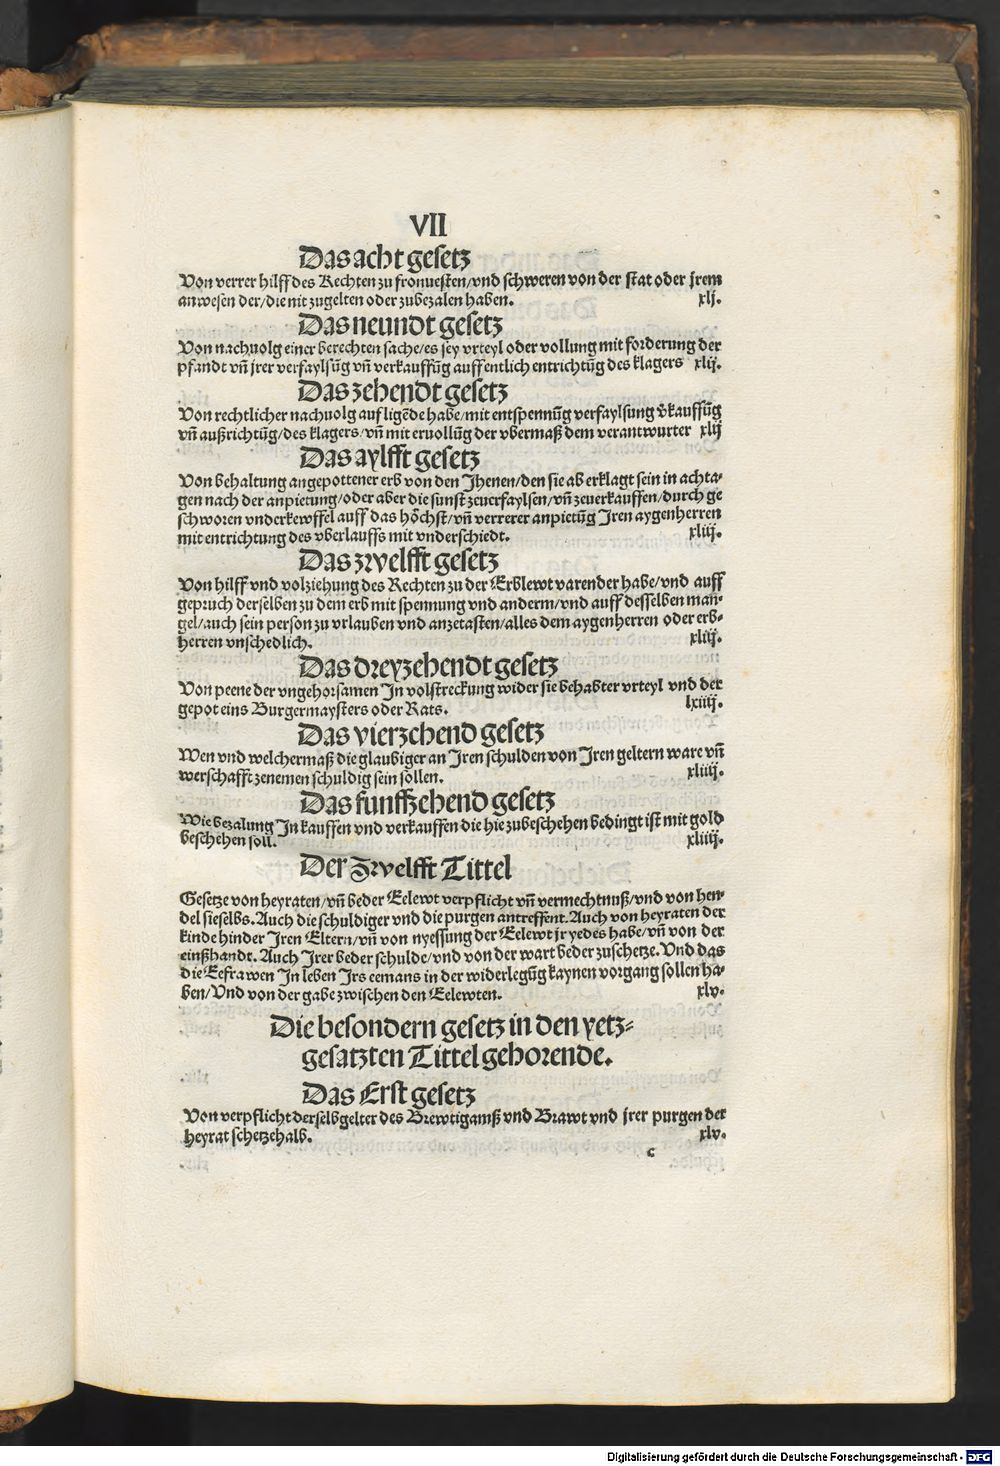 VII
Das acht gesetz
Von verrer hilff des Rechten zu fronuesten/vnd schweren von der stat oder jrem
anwesen der/die nit zugelten oder zubezalen haben. xlj.
Das neundt gesetz
Von nachuolg einer berechten sache/es sey vrteyl oder vollung mit forderung der
pfandt vn̄ jrer verfaylsūg vn̄ verkauffūg auffentlich entrichtūg des klagers xlij.
Das zehendt gesetz
Von rechtlicher nachuolg auf ligēde habe/mit entspennūg verfaylsung v̄kauffūg
vn̄ außrichtūg/des klagers/vn̄ mit eruollūg der vbermaß dem verantwurter xlij
Das aylfft gesetz
Von behaltung angepottener erb von den Jhenen/den sie ab erklagt sein in achta-
gen nach der anpietung/oder aber die sunst zeuerfaylsen/vn̄ zeuerkauffen/durch ge
schworen vnderkewffel auff das höchst/vn̄ verrerer anpietūg Jren aygenherren
mit entrichtung des vberlauffs mit vnderschiedt. xliij.
Das zwelfft gesetz
Von hilff vnd volziehung des Rechten zu der Erblewt varender habe/vnd auff
gepruch derselben zu dem erb mit spennung vnd anderm/vnd auff desselben man-
gel/auch sein person zu vrlauben vnd anzetasten/alles dem aygenherren oder erb-
herren vnschedlich. xliij.
Das dreyzehendt gesetz
Von peene der vngehorsamen Jn volstreckung wider sie behabter vrteyl vnd der
gepot eins Burgermaysters oder Rats. lxiiij.
Das vierzehend gesetz
Wen vnd welchermaß die glaubiger an Jren schulden von Jren geltern ware vn̄
werschafft zenemen schuldig sein sollen. xliiij.
Das funffzehend gesetz
Wie bezalung Jn kauffen vnd verkauffen die hie zubeschehen bedingt ist mit gold
beschehen soll. xliiij.
Der Zwelfft Tittel
Gesetze von heyraten/vn̄ beder Eelewt verpflicht vn̄ vermechtnuß/vnd von hen-
del sieselbs. Auch die schuldiger vnd die purgen antreffent. Auch von heyraten der
kinde hinder Jren Eltern/vn̄ von nyessung der Eelewt jr yedes habe/vn̄ von der
einßhandt. Auch Jrer beder schulde/vnd von der wart beder zuschetze. Vnd das
die Eefrawen Jn leben Jrs eemans in der widerlegūg kaynen vorgang sollen ha-
ben/Vnd von der gabe zwischen den Eelewten. xlv.
Die besondern gesetz in den yetz-
gesatzten Tittel gehorende.
Das Erst gesetz
Von verpflicht derselbgelter des Brewtigamß vnd Brawt vnd jrer purgen der
heyrat schetzehalb. xlv.
c
Digitalisierung gefördert durch die Deutsche Forschungsgemeinschaft - DFG